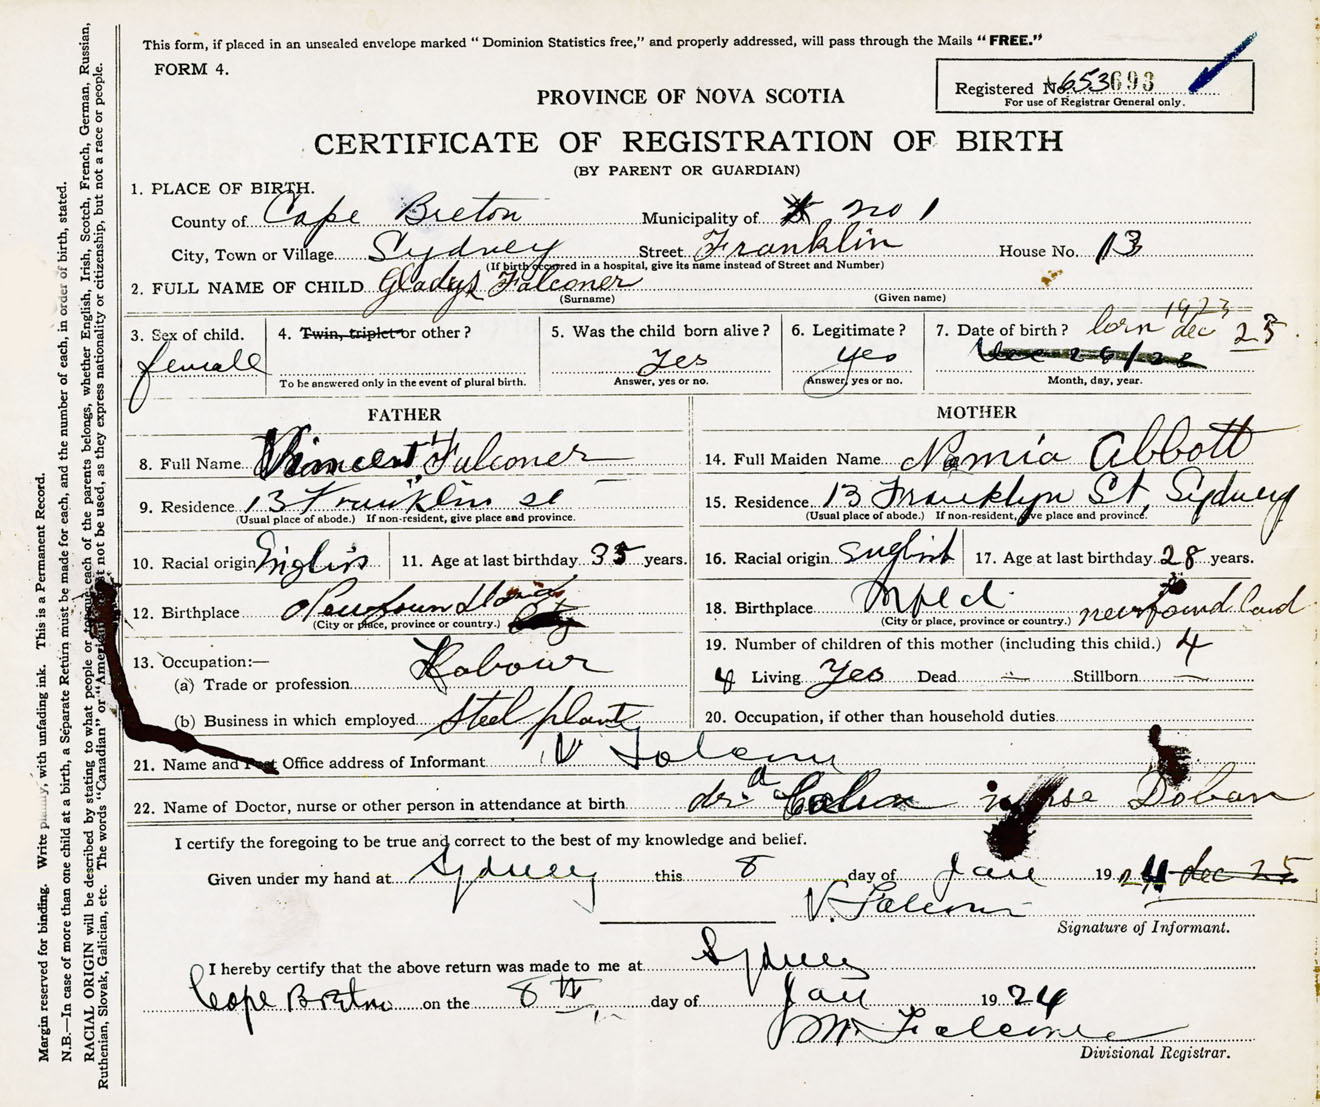 This form, if placed in an unsealed envelope marked "Dominion Statistics free," and properly addressed, will pass through the Mails "FREE."
FORM 4.
Registered No. 653693
For use of Registrar General only.
PROVINCE OF NOVA SCOTIA
CERTIFICATE OF REGISTRATION OF BIRTH
(BY PARENT OR GUARDIAN)
1. PLACE OF BIRTH.
County of Cape Breton Municipality of no 1
City, Town or Village Sydney Street Franklin House No. 13
(If birth occurred in a hospital, give its name instead of Street and Number)
2. FULL NAME OF CHILD Gladys Falconer
(Surname) (Given name)
3. Sex of child. female
4. Twin, triplet or other?
To be answered only in the event of plural birth.
5. Was the child born alive? Yes
Answer, yes or no.
6. Legitimate? yes
Answer, yes or no.
7. Date of birth? born 1923 dec 25
Month, day, year.
FATHER
8. Full Name Falconer
9. Residence 13 Franklin st
(Usual place of abode.) If non-resident, give place and province.
10. Racial origin Inglis 11. Age at last birthday 35 years.
12. Birthplace Newfoundland
(City or place, province or country.)
13. Occupation:—
(a) Trade or profession Labour
(b) Business in which employed Steel plant
MOTHER
14. Full Maiden Name Nomia Abbott
15. Residence 13 Franklyn St, Sydney
(Usual place of abode.) If non-resident, give place and province.
16. Racial origin 17. Age at last birthday 28 years.
18. Birthplace newfoundland
(City or place, province or country.)
19. Number of children of this mother (including this child.) 4
4 Living Yes Dead — Stillborn —
20. Occupation, if other than household duties
21. Name and Post Office address of Informant V
22. Name of Doctor, nurse or other person in attendance at birth dr. nurse Doban
I certify the foregoing to be true and correct to the best of my knowledge and belief.
Given under my hand at Sydney this 8 day of Jan 1924 dec 25
V. Falconer
Signature of Informant.
I hereby certify that the above return was made to me at Sydney
Cape Breton on the 8th day of Jan 1924
Divisional Registrar.
Margin reserved for binding. Write plainly, with unfading ink. This is a Permanent Record.
N.B.—In case of more than one child at a birth, a Separate Return must be made for each, and the number of each, in order of birth, stated.
RACIAL ORIGIN will be described by stating to what people or tongue each of the parents belongs, whether English, Irish, Scotch, French, German, Russian,
Ruthenian, Slovak, Galician, etc. The words "Canadian" or "American" must not be used, as they express nationality or citizenship, but not a race or people.